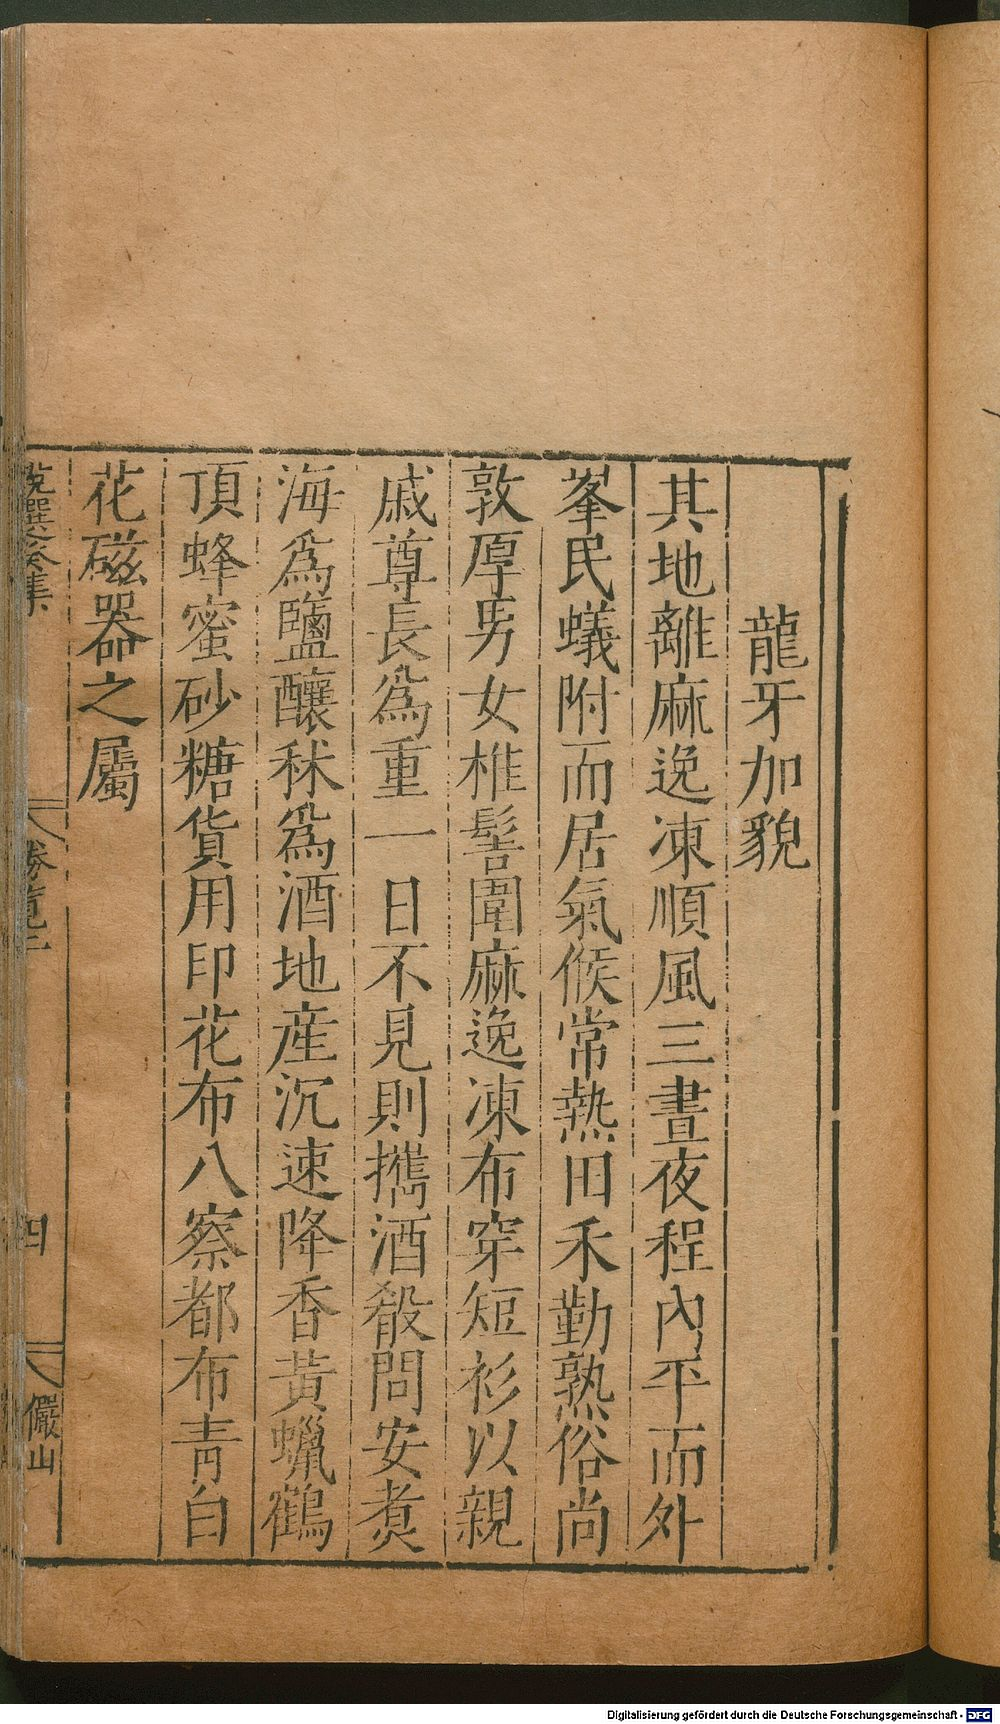 龍牙加貌
其地離麻逸凍順風三晝夜程内平而外
峯民蟻附而居氣候常熱田禾勤熟俗尚
敦厚男女椎髻圍麻逸凍布穿短衫以親
戚尊長爲重一日不見則攜酒殽問安煑
海爲鹽釀秫爲酒地産沉速降香黃蠟鶴
頂蜂蜜砂糖貨用印花布八察都布青白
花磁器之屬
說選癸集
勝覽二
四
儼山
Digitalisierung gefördert durch die Deutsche Forschungsgemeinschaft - DFG